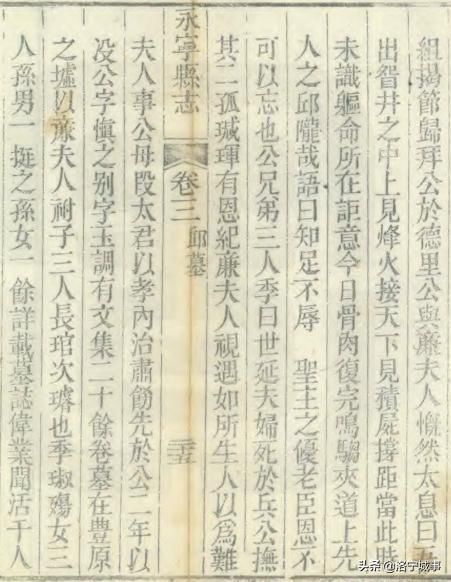 組揭節歸拜公於德里公與廉夫人慨然太息曰吾
出眢井之中上見烽火接天下見積屍撐距當此時
未識軀命所在詎意今日骨肉復完鳴騶夾道上先
人之邱隴哉語曰知足不辱 聖主之優老臣恩不
可以忘也公兄弟三人季曰世延夫婦死於兵公撫
其二孤瑊琿有恩紀廉夫人視遇如所生人以為難
永寧縣志 卷三 邱墓 三五
夫人事公母段太君以孝內治肅飭先於公二年以
没公字慎之别字玉調有文集二十餘卷墓在豊原
之墟以廉夫人祔子三人長琯次璿也季淑殤女三
人孫男一 挺之孫女一 餘詳載墓誌偉業聞活千人
头条@洛宁城事